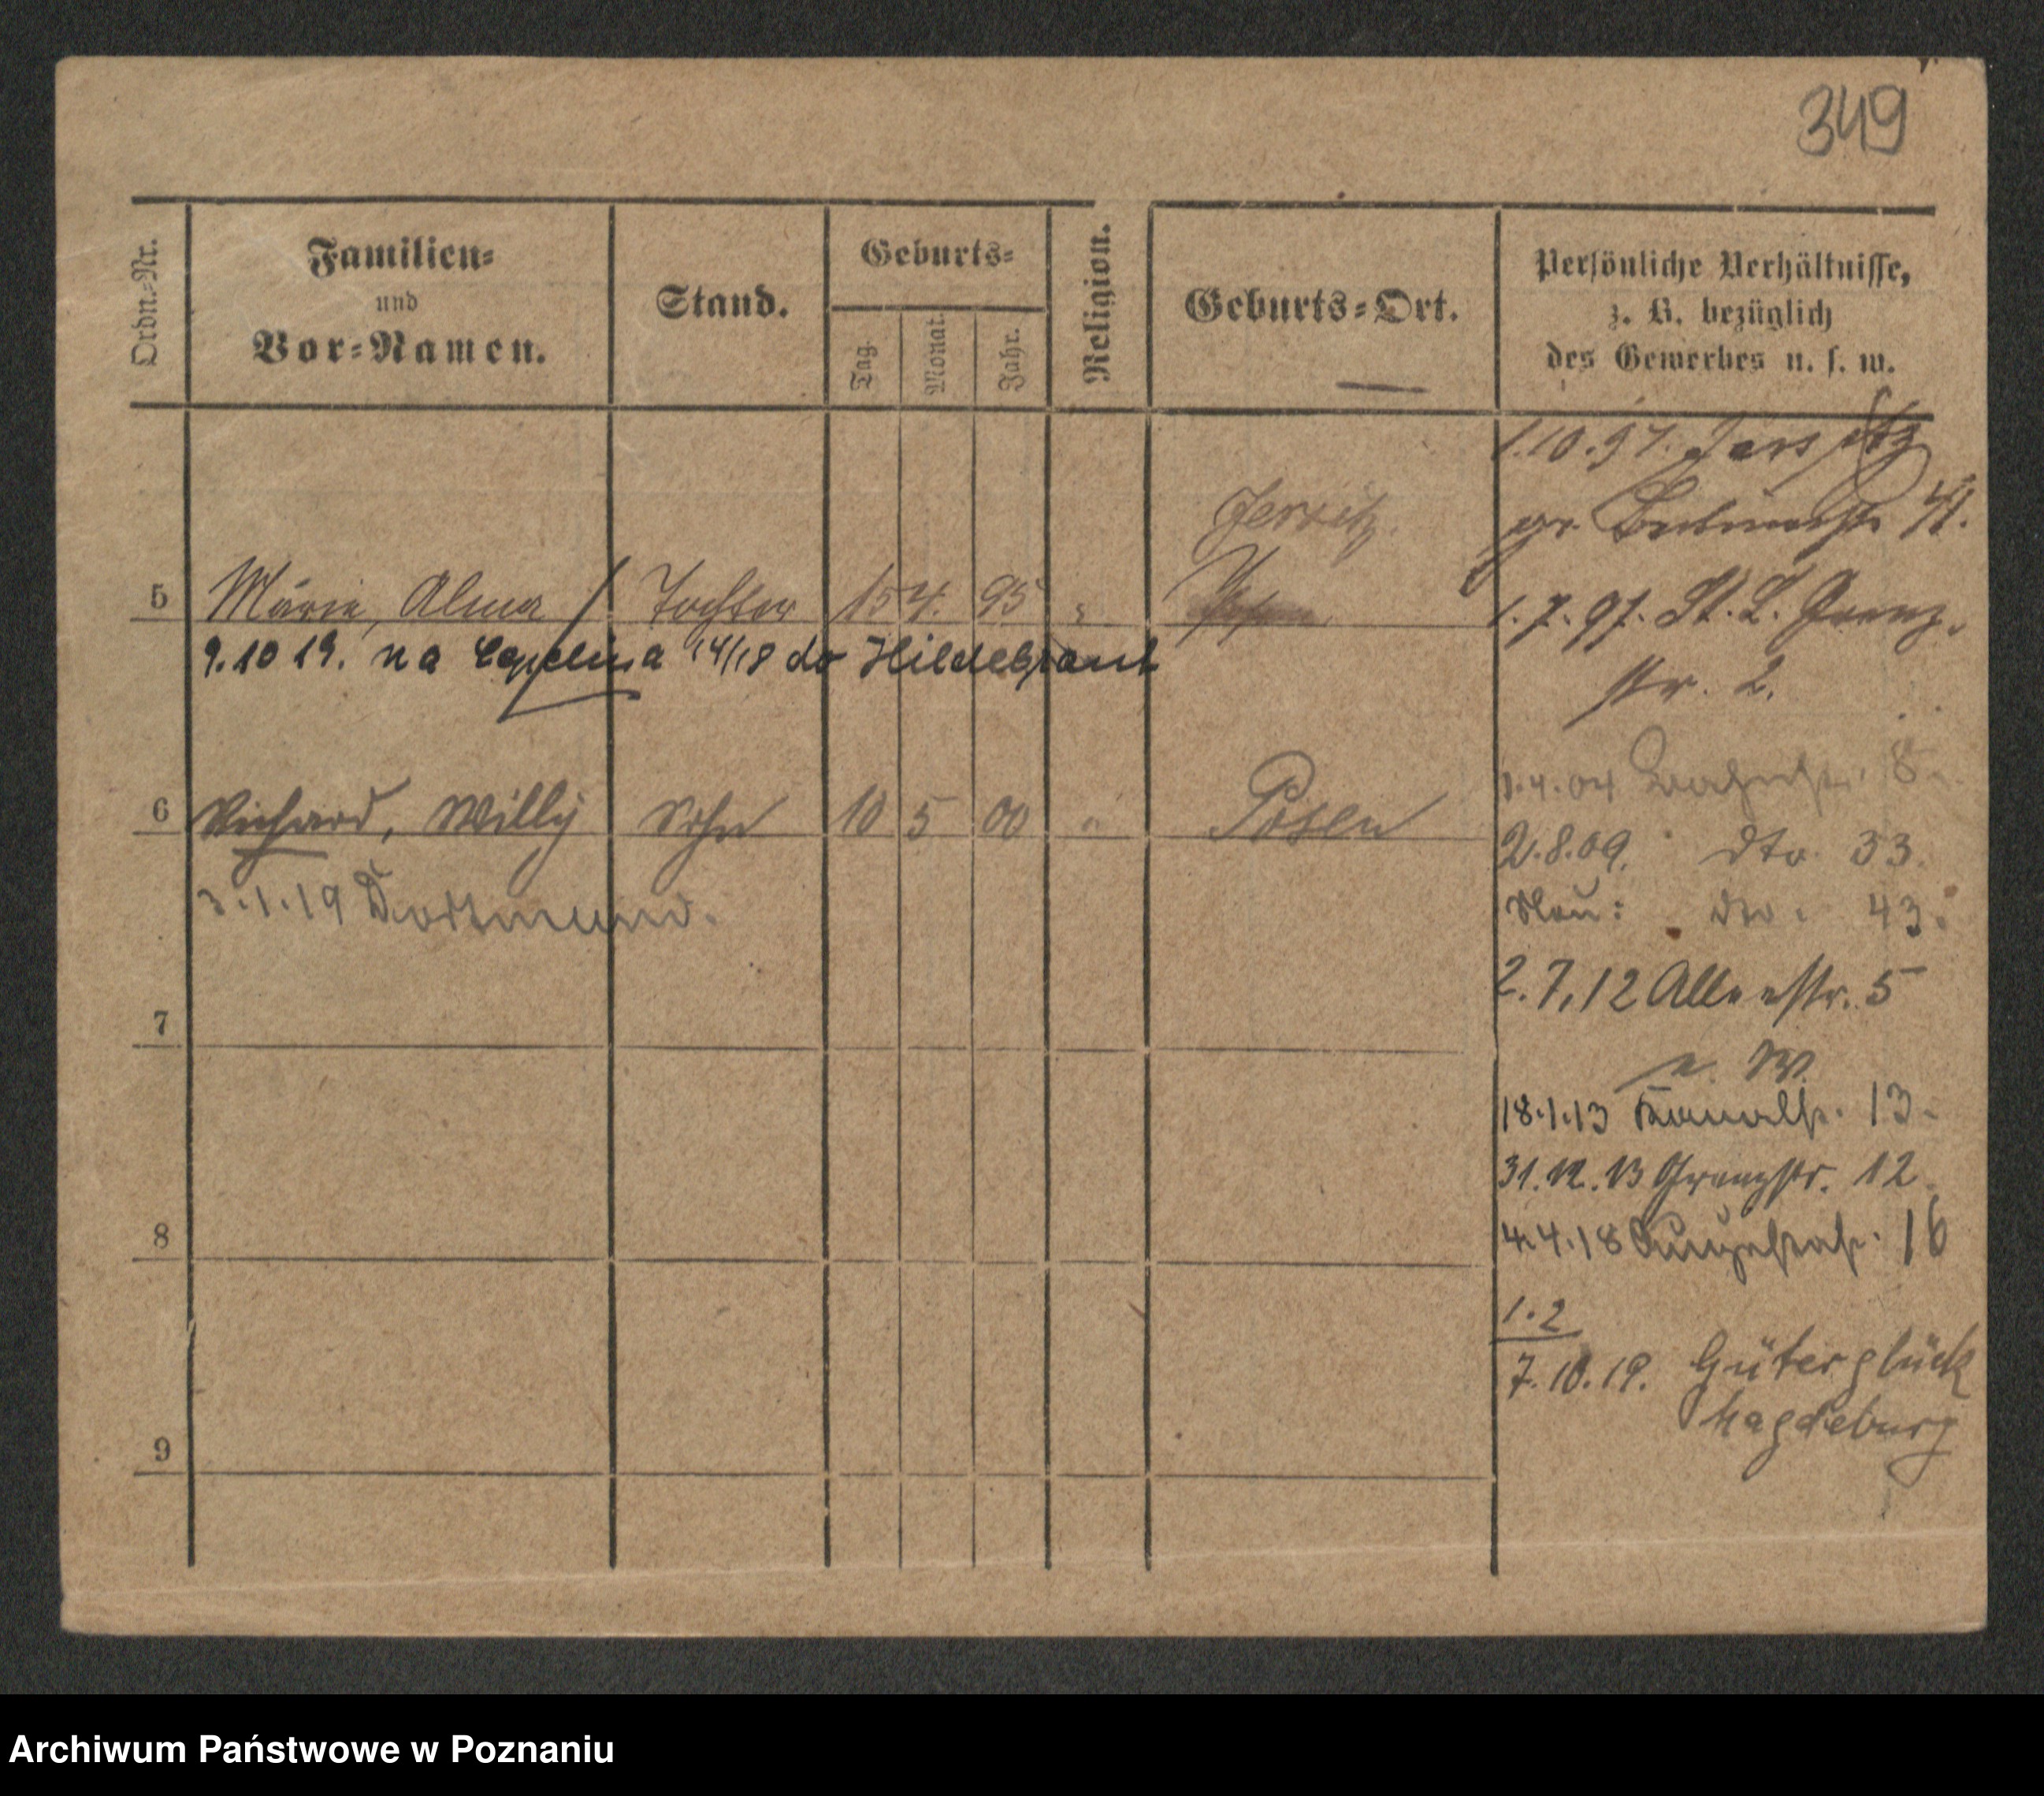 349
Ordn.-Nr.
Familien-
und
Vor-Namen.
Stand.
Geburts-
Tag.
Monat.
Jahr.
Religion.
Geburts-Ort.
Persönliche Verhältnisse,
z. B. bezüglich
des Gewerbes u. s. w.
1.10.97. Jersitz
gr. 41.
Jersitz.
5 Marie, Alma Tochter 15 4. 95
1.7.97. St. L. Grenz-
str. 2.
9.10 19. na 14/18 do Hildebrant
1.4.04 8.
6 Richard, Willy Sohn 10 5 00 " Posen
2.8.09. dto. 33.
3.1.19 Dortmund.
Neu: dto. 43.
7
2.7.12 Alleestr. 5
n. W.
8
18.1.13 Kanalstr. 13.
31.12.13 Grenzstr. 12.
4.4.18 16
1.2
7.10.19. Güterglück
Magdeburg
9
Archiwum Państwowe w Poznaniu